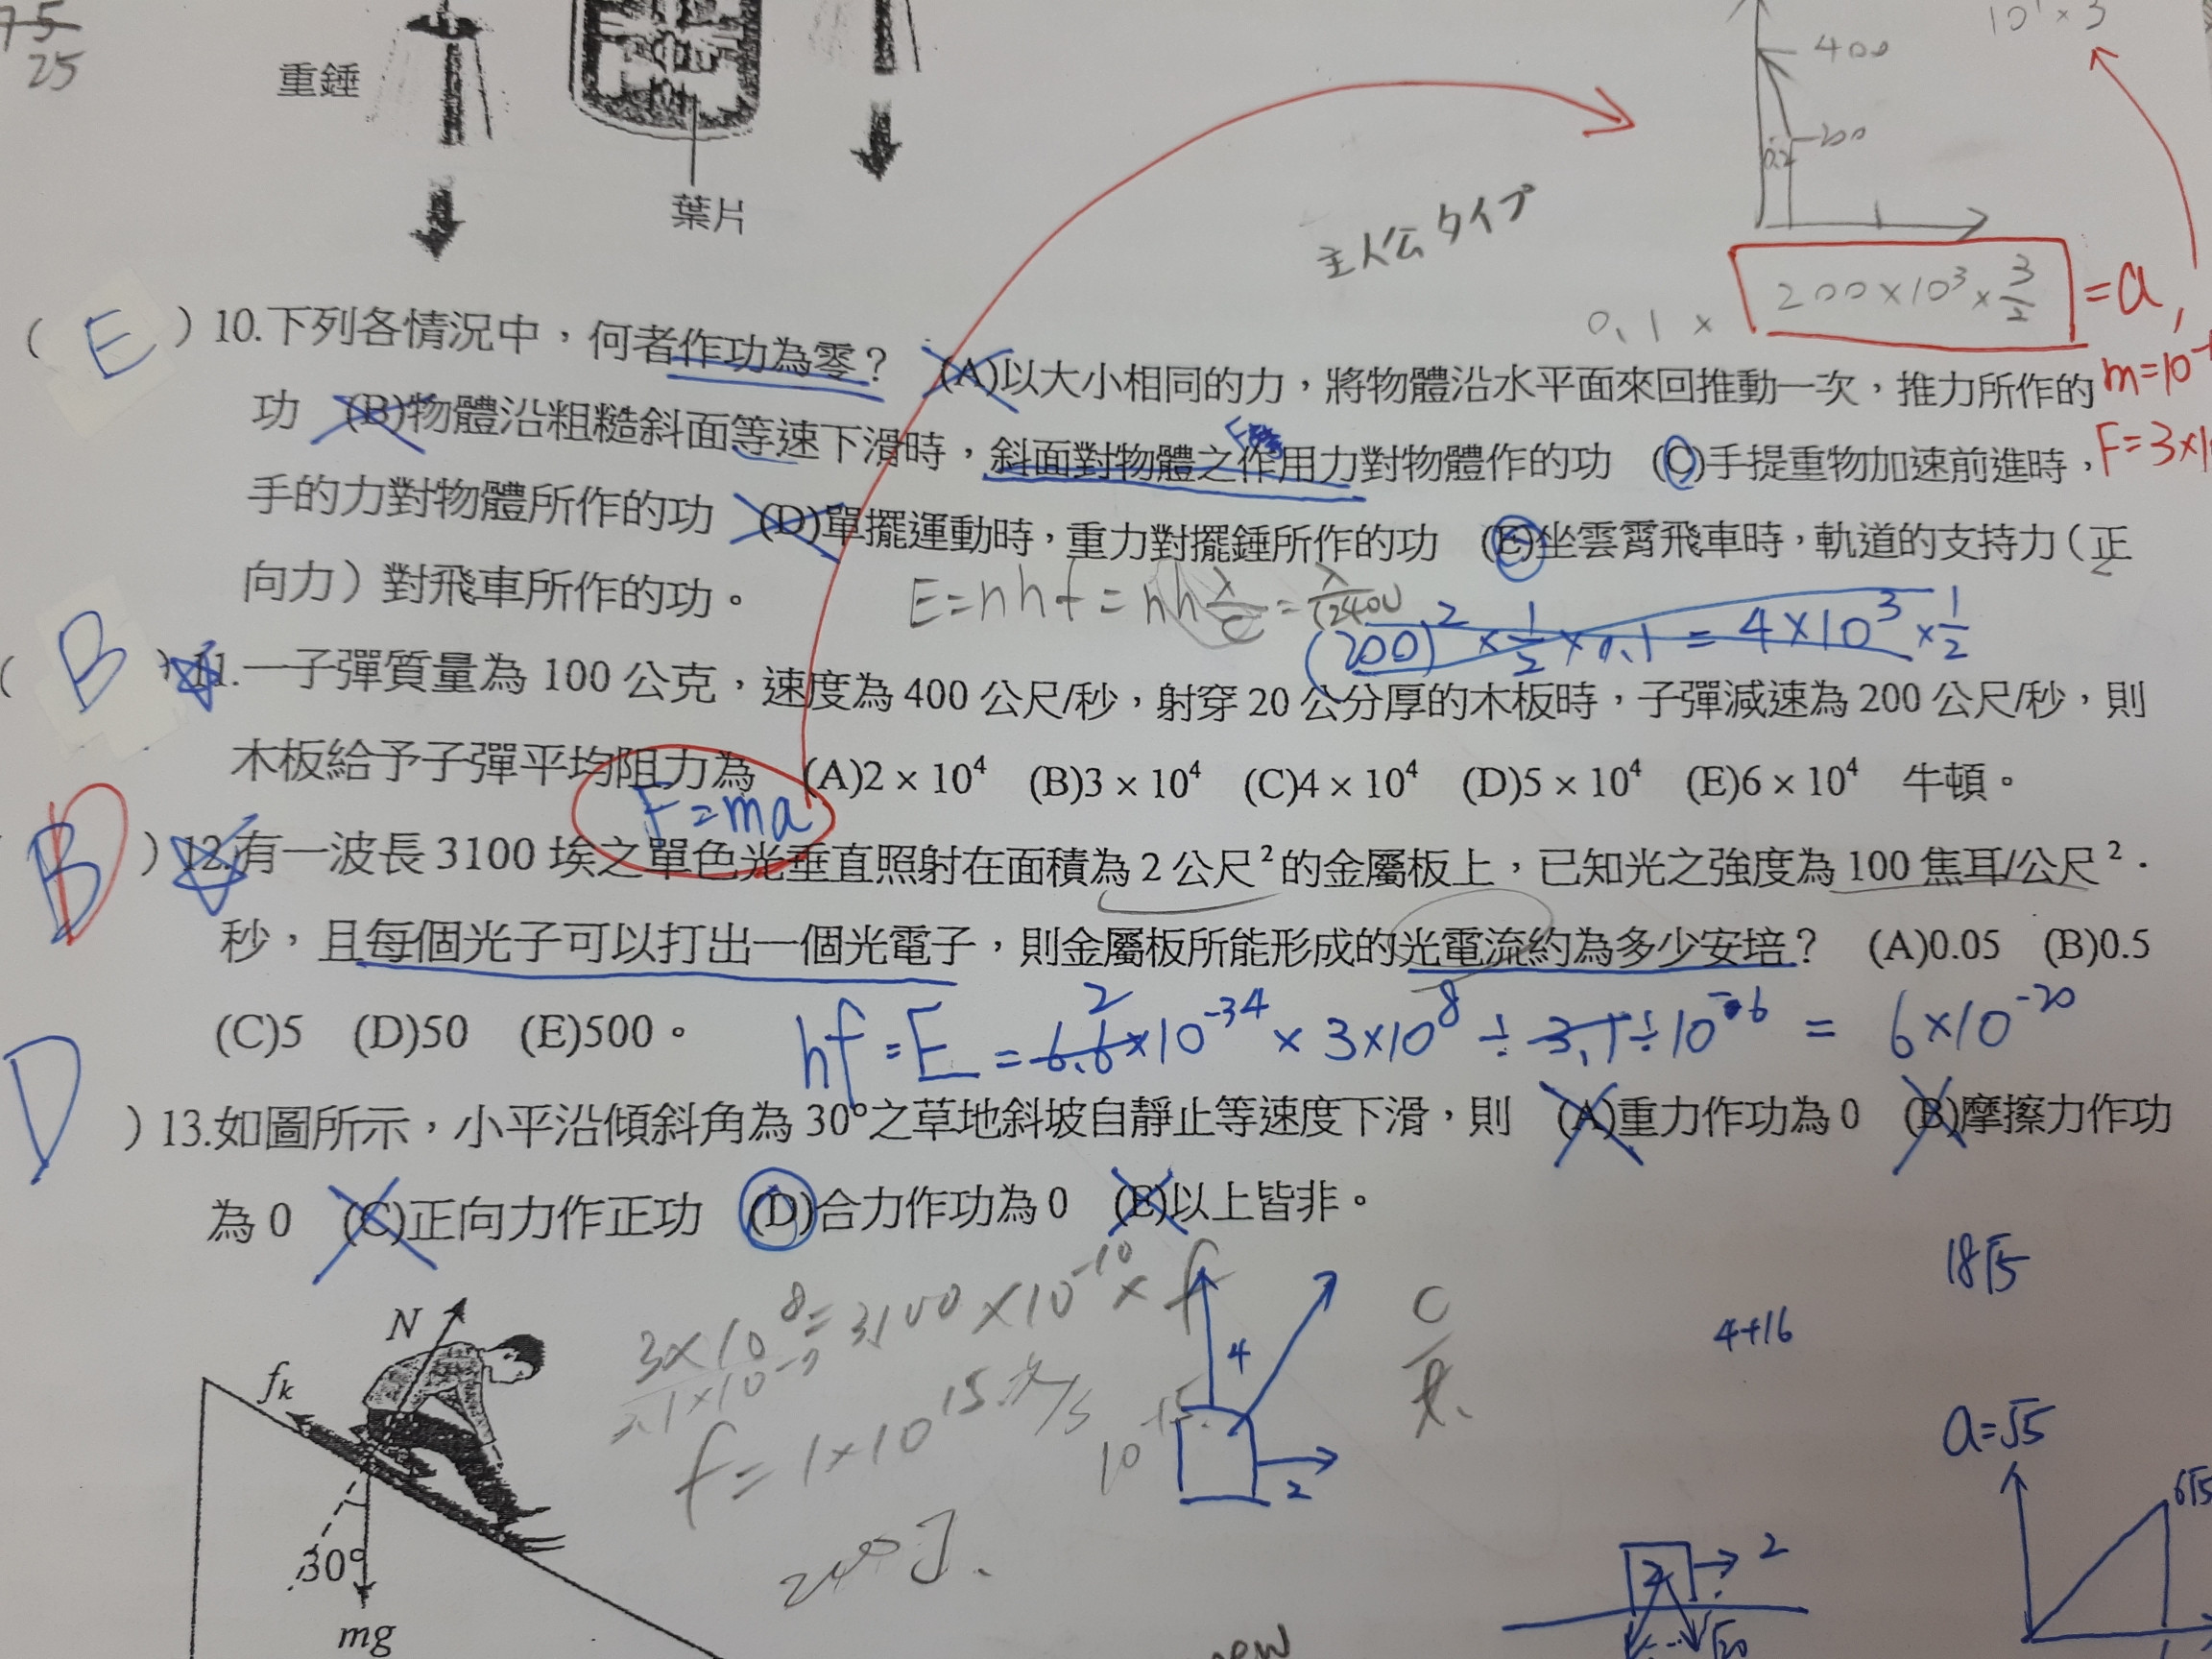 5
25
重錘
葉片
400
200
0.2
主人公タイプ
0.1 × 200×10³×3/2 =a,
(E)10.下列各情況中，何者作功為零？ (A)以大小相同的力，將物體沿水平面來回推動一次，推力所作的
功 (B)物體沿粗糙斜面等速下滑時，斜面對物體之作用力對物體作的功 (C)手提重物加速前進時，
手的力對物體所作的功 (D)單擺運動時，重力對擺錘所作的功 (E)坐雲霄飛車時，軌道的支持力（正
向力）對飛車所作的功。
E=nhf=nh
(200)²×1/2×0.1=4×10³×1/2
(B)11.一子彈質量為 100 公克，速度為 400 公尺/秒，射穿 20 公分厚的木板時，子彈減速為 200 公尺/秒，則
木板給予子彈平均阻力為 (A)2 × 10⁴ (B)3 × 10⁴ (C)4 × 10⁴ (D)5 × 10⁴ (E)6 × 10⁴ 牛頓。
F=ma
B)12.有一波長 3100 埃之單色光垂直照射在面積為 2 公尺²的金屬板上，已知光之強度為 100 焦耳/公尺²．
秒，且每個光子可以打出一個光電子，則金屬板所能形成的光電流約為多少安培？ (A)0.05 (B)0.5
(C)5 (D)50 (E)500。
hf=E=6.6×10⁻³⁴×3×10⁸÷3.1÷10⁻⁶=6×10⁻²⁰
2
D)13.如圖所示，小平沿傾斜角為 30°之草地斜坡自靜止等速度下滑，則 (A)重力作功為 0 (B)摩擦力作功
為 0 (C)正向力作正功 (D)合力作功為 0 (E)以上皆非。
3×10⁸=3100×10⁻¹⁰×f
f=1×10¹⁵
200J.
4
2
18√5
4+16
a=√5
2
√20
N
fk
30°
mg